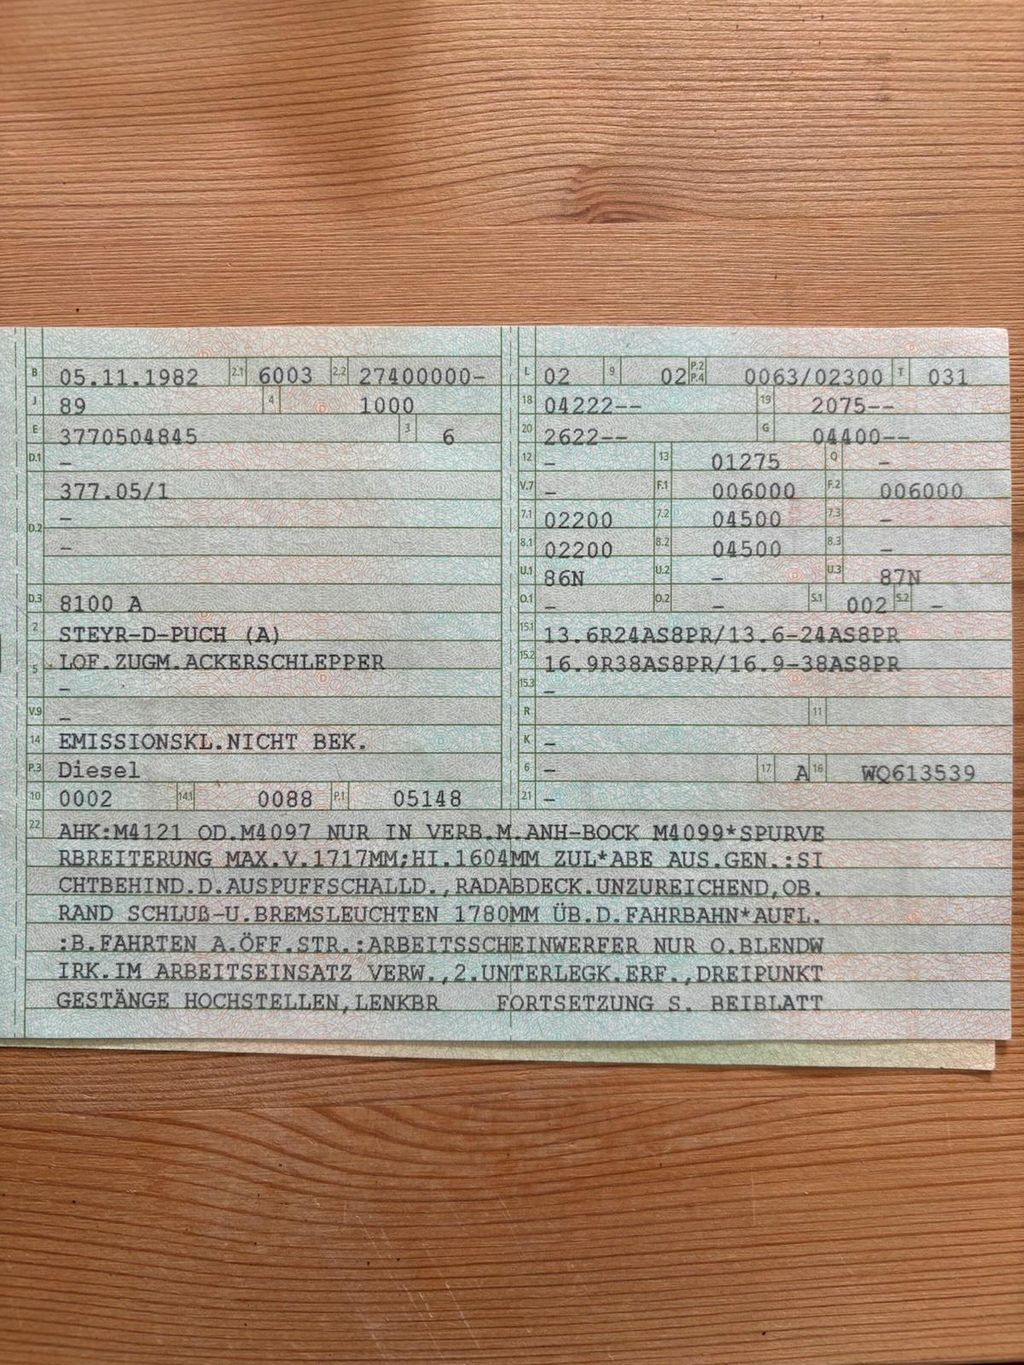 B 05.11.1982 2.1 6003 2.2 27400000-
J 89 4 1000
E 3770504845 3 6
D.1 –
377.05/1
D.2 –
–
D.3 8100 A
2 STEYR-D-PUCH (A)
5 LOF.ZUGM.ACKERSCHLEPPER
–
V.9 –
14 EMISSIONSKL.NICHT BEK.
P.3 Diesel
10 0002 14.1 0088 P.1 05148
L 02 9 02 P.2 P.4 0063/02300 T 031
18 04222-- 19 2075--
20 2622-- G 04400--
12 – 13 01275 Q –
V.7 – F.1 006000 F.2 006000
7.1 02200 7.2 04500 7.3 –
8.1 02200 8.2 04500 8.3 –
U.1 86N U.2 – U.3 87N
O.1 – O.2 – S.1 002 S.2 –
15.1 13.6R24AS8PR/13.6-24AS8PR
15.2 16.9R38AS8PR/16.9-38AS8PR
15.3 –
R 11
K –
6 – 17 A 16 WQ613539
21 –
22 AHK:M4121 OD.M4097 NUR IN VERB.M.ANH-BOCK M4099*SPURVE
RBREITERUNG MAX.V.1717MM;HI.1604MM ZUL*ABE AUS.GEN.:SI
CHTBEHIND.D.AUSPUFFSCHALLD.,RADABDECK.UNZUREICHEND,OB.
RAND SCHLUß-U.BREMSLEUCHTEN 1780MM ÜB.D.FAHRBAHN*AUFL.
:B.FAHRTEN A.ÖFF.STR.:ARBEITSSCHEINWERFER NUR O.BLENDW
IRK.IM ARBEITSEINSATZ VERW.,2.UNTERLEGK.ERF.,DREIPUNKT
GESTÄNGE HOCHSTELLEN,LENKBR FORTSETZUNG S. BEIBLATT